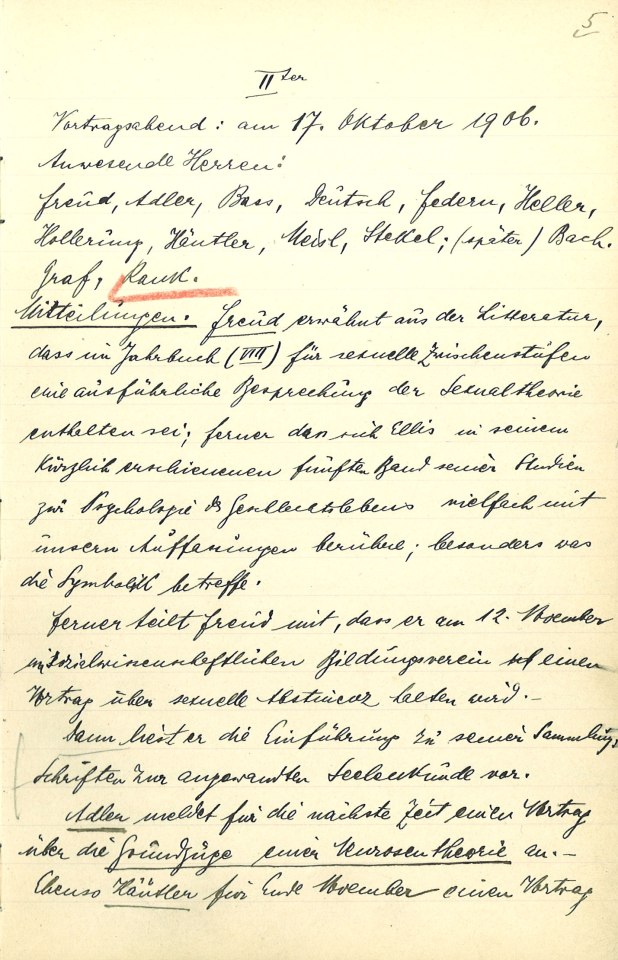 5
IIter
Vortragsabend: am 17. Oktober 1906.
Anwesende Herren:
Freud, Adler, Bass, Deutsch, Federn, Heller,
Hollerung, Häutler, Meisl, Stekel; (später) Bach.
Graf, Rank.
Mitteilungen. Freud erwähnt aus der Litteratur,
dass im Jahrbuch (VIII) für sexuelle Zwischenstufen
eine ausführliche Besprechung der Sexualtheorie
enthalten sei; ferner dass sich Ellis in seinem
kürzlich erschienenen fünften Band seiner Studien
zur Psychologie des Geschlechtslebens vielfach mit
unsern Auffassungen berühre; besonders was
die Symbolik betreffe.
Ferner teilt Freud mit, dass er am 12. November
im Sozialwissenschaftlichen Bildungsverein einen
Vortrag über sexuelle Abstinenz halten wird.-
Dann liest er die Einführung zu seiner Sammlung:
Schriften zur angewandten Seelenkunde vor.
Adler meldet für die nächste Zeit einen Vortrag
über die Grundzüge einer Neurosentheorie an.-
Ebenso Häutler für Ende November einen Vortrag